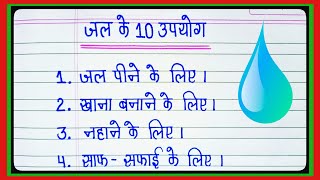 जल के 10 उपयोग
1. जल पीने के लिए।
2. खाना बनाने के लिए।
3. नहाने के लिए।
4. साफ-सफाई के लिए।